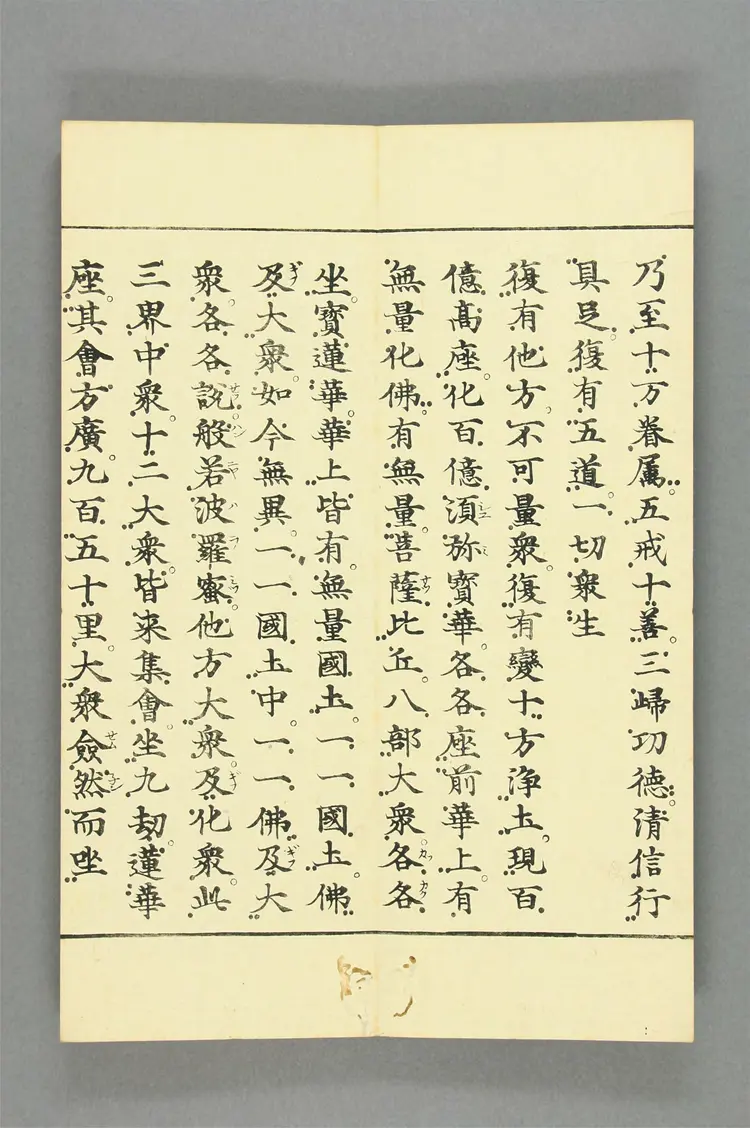 乃至十万眷属五戒十善三歸功德清信行
具足復有五道一切衆生
復有他方不可量衆復有變十方淨土現百
億髙座化百億湏弥寳華各各座前華上有
無量化佛有無量菩薩比丘八部大衆各各
坐寳蓮華華上皆有無量國土一一國土佛
及大衆如今無異一一國土中一一佛及大
衆各各説般若波羅蜜他方大衆及化衆此
三界中衆十二大衆皆来集會坐九劫蓮華
座其會方廣九百五十里大衆僉然而坐